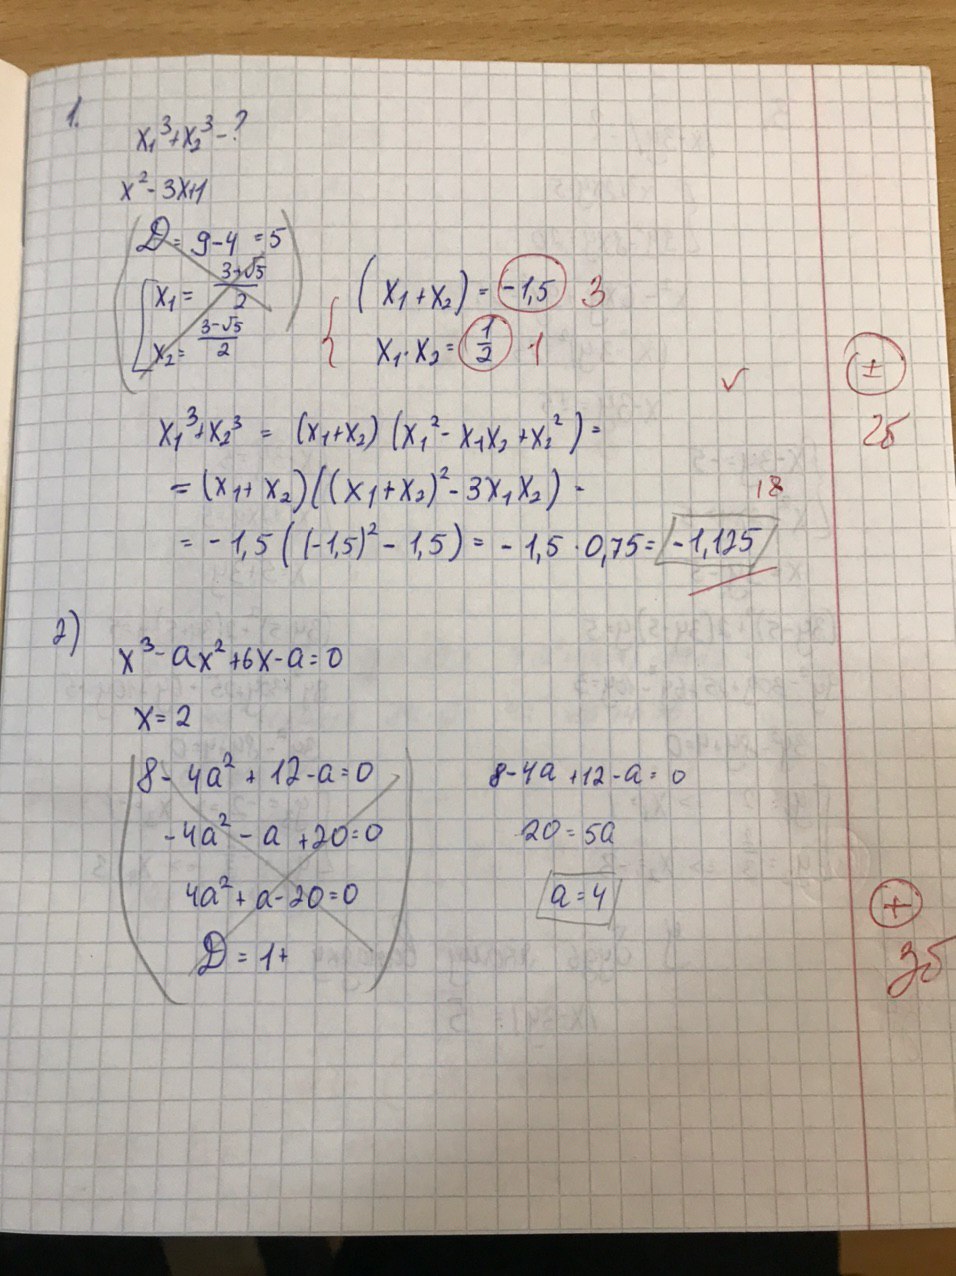 1.
x₁³+x₂³-?
x²-3x+1
D = 9-4 = 5
x₁ = (3+√5)/2
x₂ = (3-√5)/2
(x₁+x₂) = -1,5 3
x₁·x₂ = 1/2 1
±
2б
x₁³+x₂³ = (x₁+x₂)(x₁²-x₁x₂+x₂²) =
= (x₁+x₂)((x₁+x₂)²-3x₁x₂) =
18
= -1,5((-1,5)²-1,5) = -1,5·0,75 = -1,125
2)
x³-ax²+6x-a=0
x=2
8-4a²+12-a=0
-4a²-a+20=0
4a²+a-20=0
D = 1+
8-4a+12-a=0
20=5a
a=4
+
3б